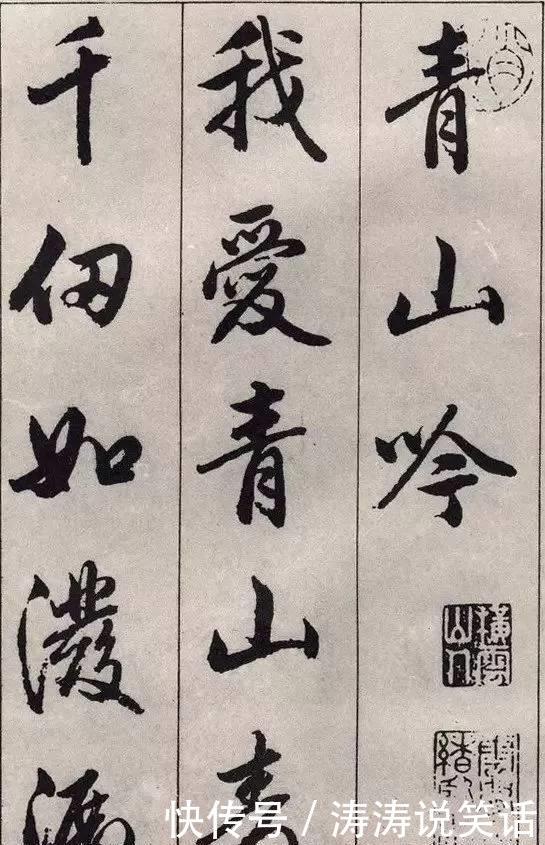 青山吟
橫雲山人
我愛青山
千仞如潑
快传号 / 涛涛说笑话